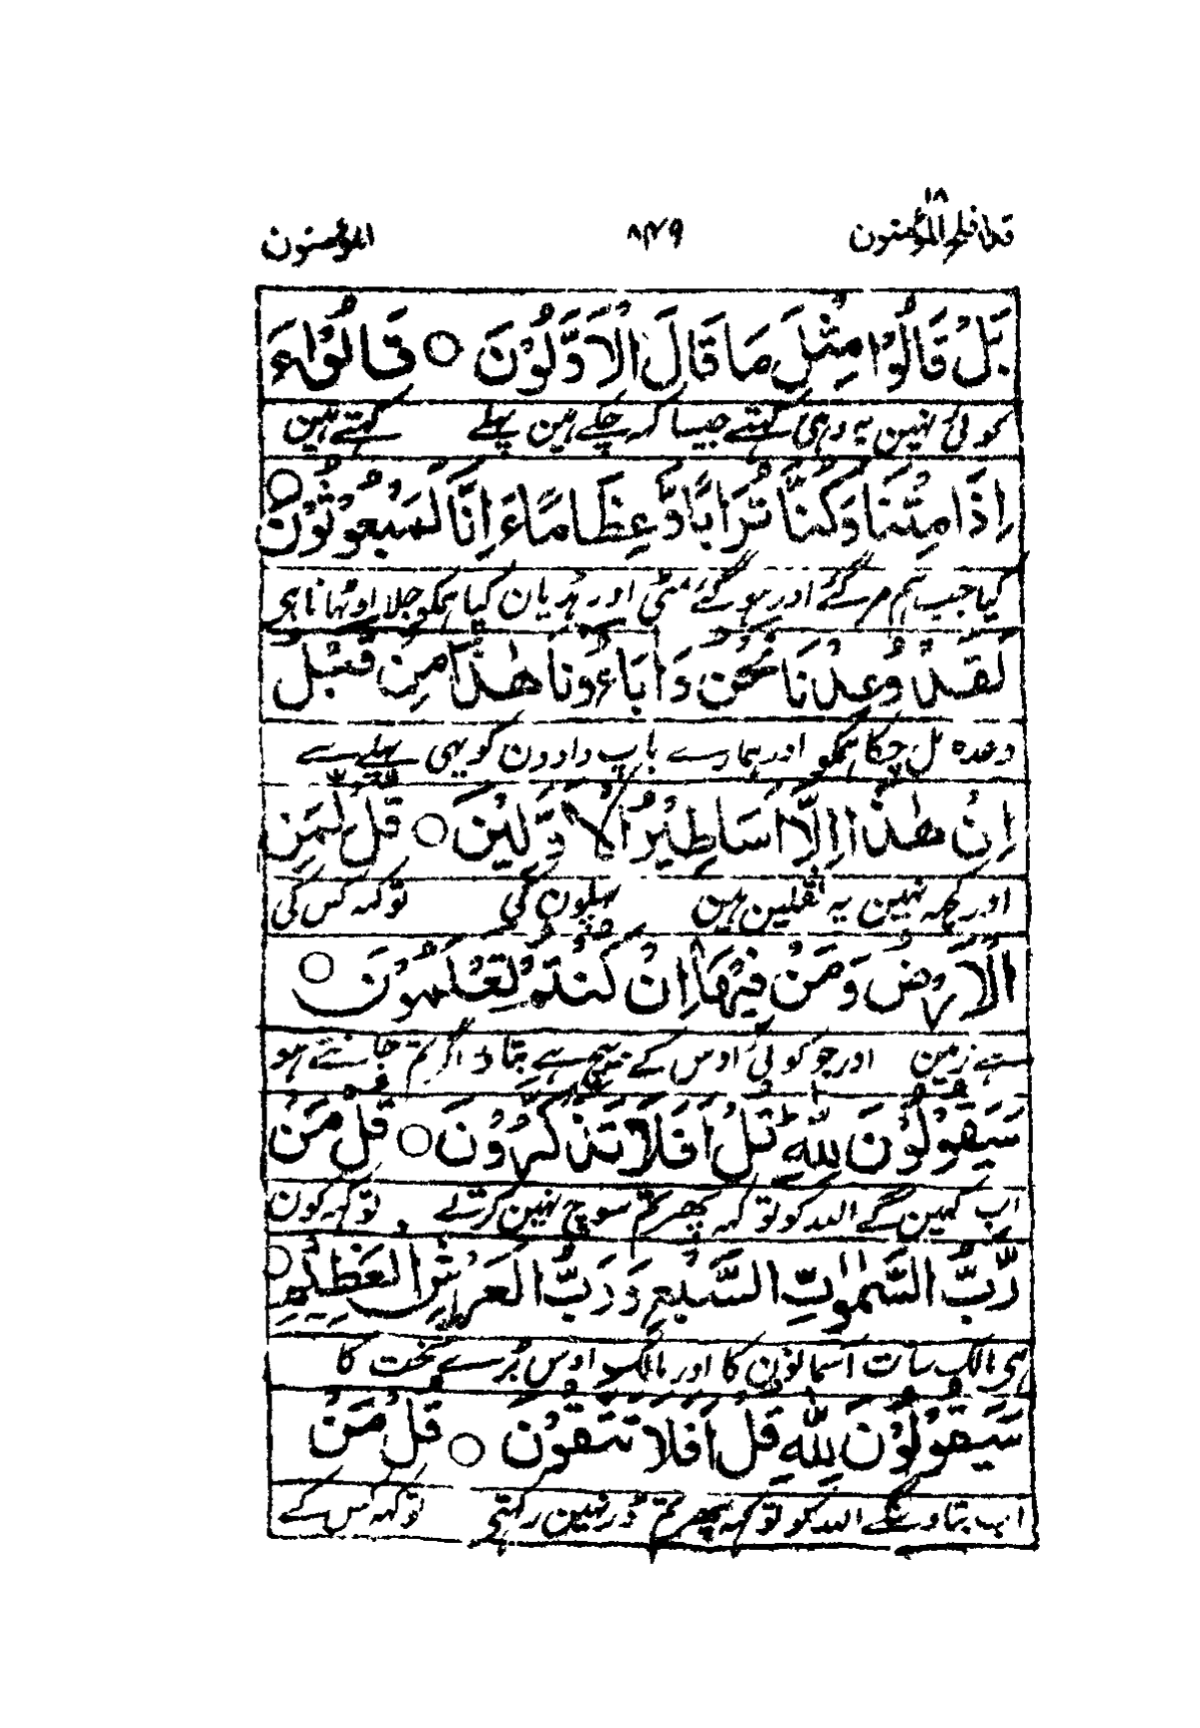 قد افلح المؤمنون ۱۸ ۸۴۹ المؤمنون
بَلْ قَالُوْا مِثْلَ مَا قَالَ الْاَوَّلُوْنَ ○ قَالُوْٓا ءَ
کوئی نہین یہ وہی کہتے جیسا کہ چکے ہین پہلے کہتے ہین
اِذَا مِتْنَا وَكُنَّا تُرَابًا وَّعِظَامًا ءَاِنَّا لَمَبْعُوْثُوْنَ ○
کیا جب ہم مر گئے اور ہو گئے مٹی اور ہڈیان کیا ہمکو جلا اوٹہانا ہی
لَقَدْ وُعِدْنَا نَحْنُ وَاٰبَاءُؤنَا هٰذَا مِنْ قَبْلُ
وعدہ مل چکا ہمکو اور ہمارے باپ دادون کو یہی پہلے سے
اِنْ هٰذَٓا اِلَّآ اَسَاطِيْرُ الْاَوَّلِيْنَ ○ قُلْ لِّمَنِ
اور کچہہ نہین یہ نقلین ہین پہلون کی تو کہہ کس کی
الْاَرْضُ وَمَنْ فِيْهَآ اِنْ كُنْتُمْ تَعْلَمُوْنَ ○
ہے زمین اور جو کوئی اوس کے بیچ ہے بتاؤ اگر تم جانتے ہو
سَيَقُوْلُوْنَ لِلّٰهِ ؕ قُلْ اَفَلَا تَذَكَّرُوْنَ ○ قُلْ مَنْ
اب کہین گے اللہ کو تو کہہ پھر تم سوچ نہین کرتے تو کہہ کون
رَّبُّ السَّمٰوٰتِ السَّبْعِ وَرَبُّ الْعَرْشِ الْعَظِيْمِ ○
ہی مالک سات آسمانون کا اور مالک اوس بڑے تخت کا
سَيَقُوْلُوْنَ لِلّٰهِ قُلْ اَفَلَا تَتَّقُوْنَ ○ قُلْ مَنْ
اب بتاوینگے اللہ کو تو کہہ پھر تم ڈر نہین رکہتے تو کہہ کس کے